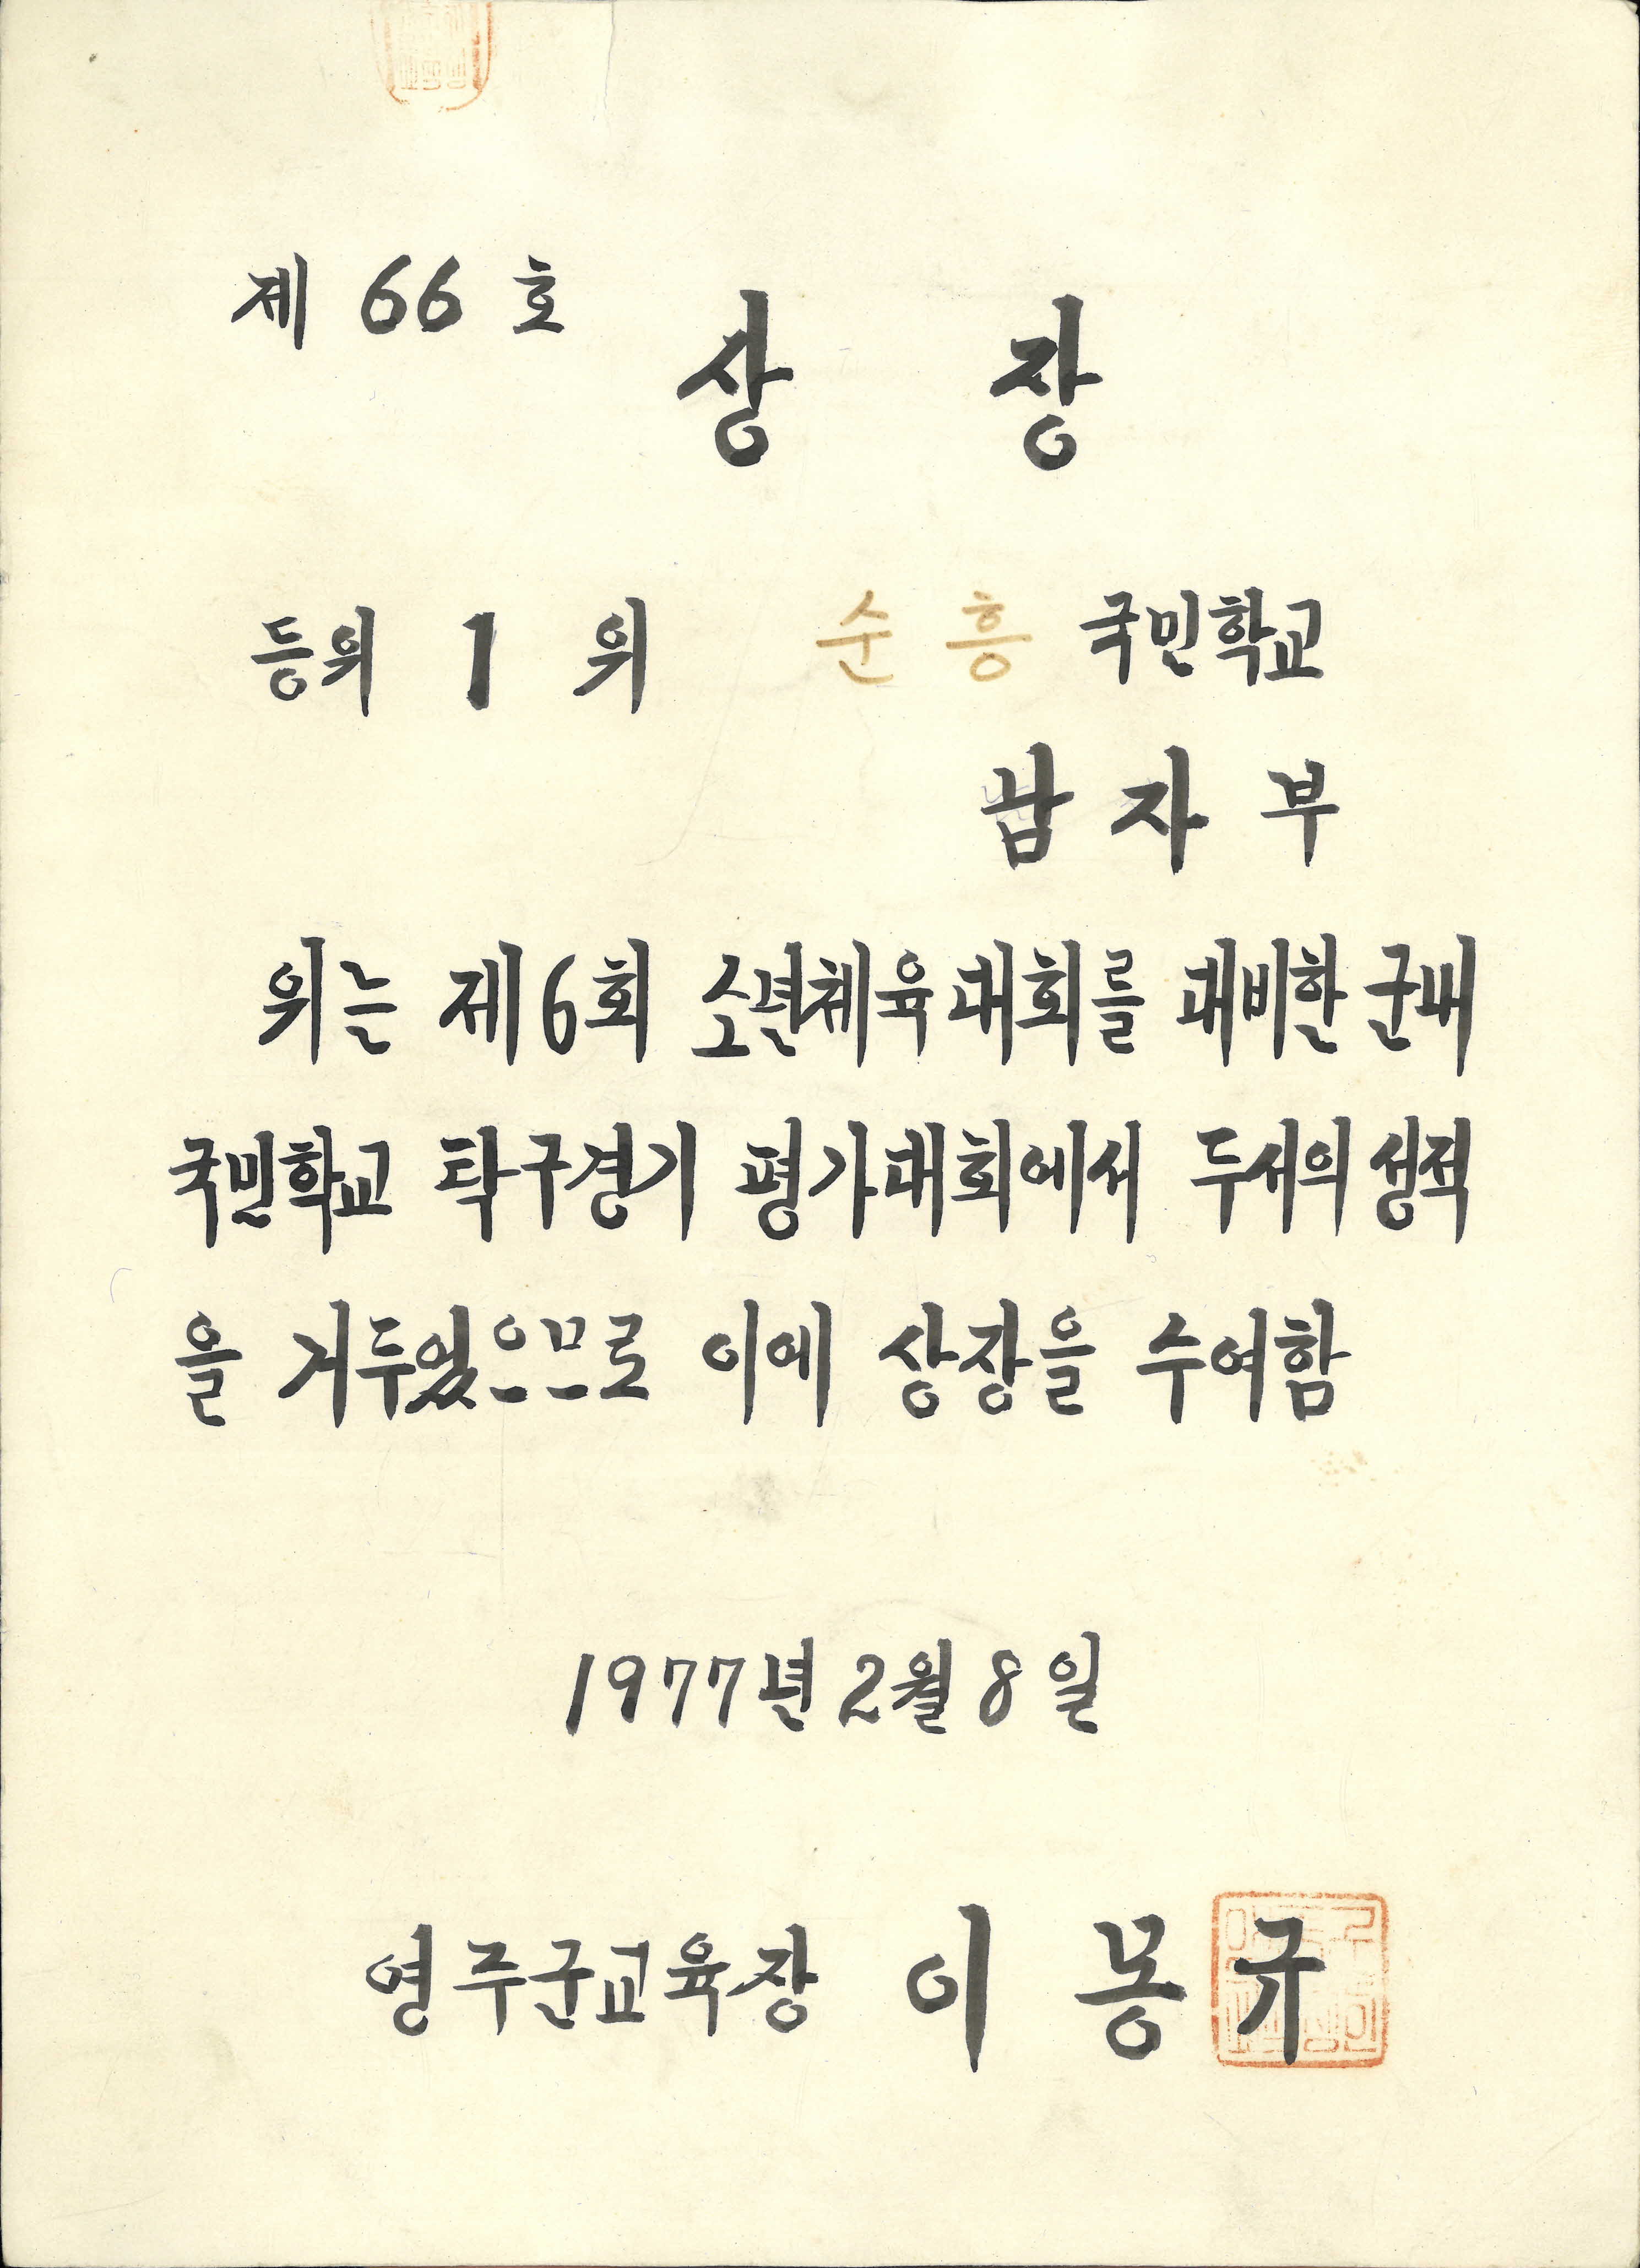 제 66 호
상 장
등위 1 위 순흥 국민학교
남자부
위는 제6회 소년체육대회를 대비한 군내
국민학교 탁구경기 평가대회에서 두서의 성적
을 거두었으므로 이에 상장을 수여함
1977년 2월 8일
영주군교육장 이몽규